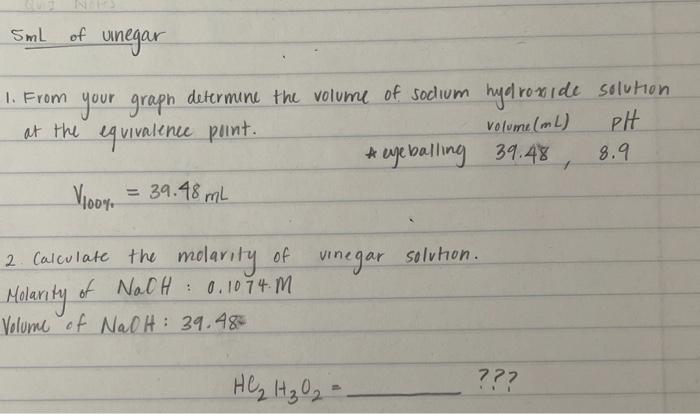 5mL of vinegar
1. From your graph determine the volume of sodium hydroxide solution
at the equivalence point. volume(mL) pH
* eyeballing 39.48 , 8.9
V100% = 39.48 mL
2. Calculate the molarity of vinegar solution.
Molarity of NaOH : 0.1074 M
Volume of NaOH : 39.48
HC2H3O2 = ________ ???